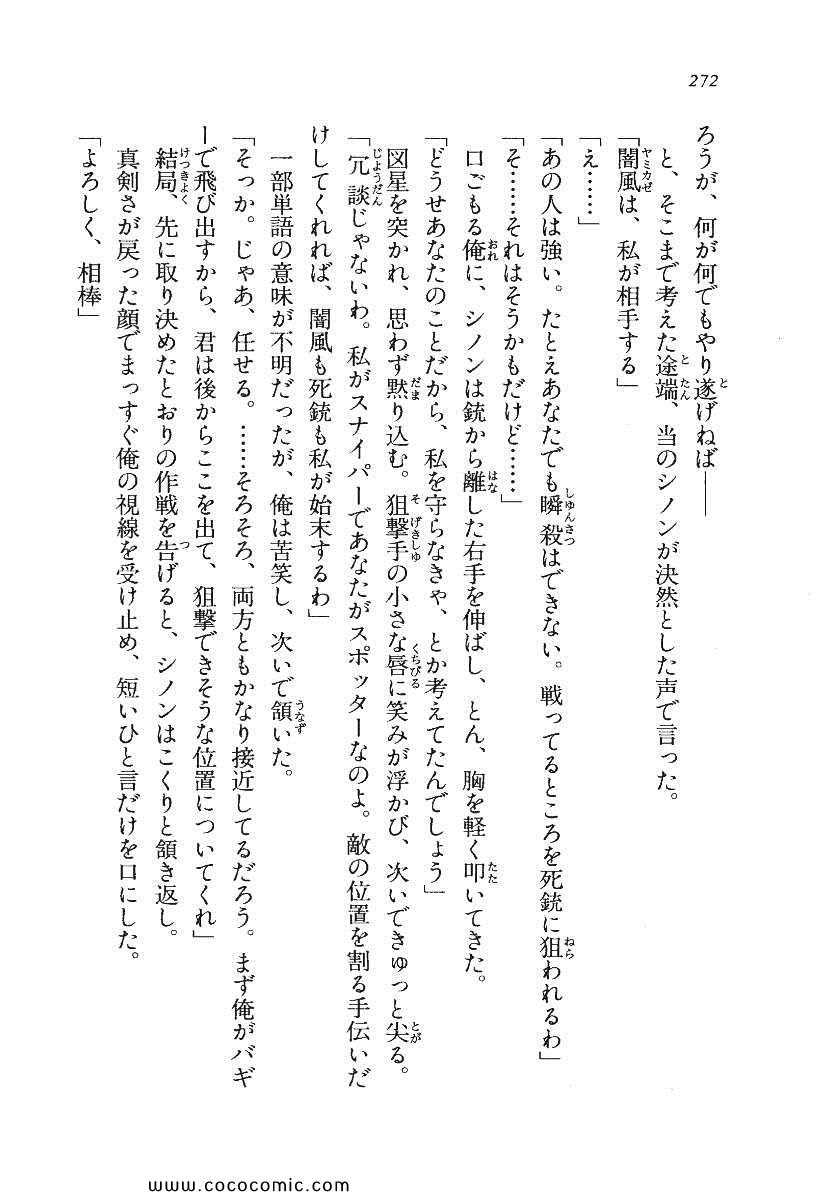 272
ろうが、何が何でもやり遂げねば――
と、そこまで考えた途端、当のシノンが決然とした声で言った。
「闇風は、私が相手する」
「え……」
「あの人は強い。たとえあなたでも瞬殺はできない。戦ってるところを死銃に狙われるわ」
「そ……それはそうかもだけど……」
口ごもる俺に、シノンは銃から離した右手を伸ばし、とん、胸を軽く叩いてきた。
「どうせあなたのことだから、私を守らなきゃ、とか考えてたんでしょう」
図星を突かれ、思わず黙り込む。狙撃手の小さな唇に笑みが浮かび、次いできゅっと尖る。
「冗談じゃないわ。私がスナイパーであなたがスポッターなのよ。敵の位置を割る手伝いだ
けしてくれれば、闇風も死銃も私が始末するわ」
一部単語の意味が不明だったが、俺は苦笑し、次いで頷いた。
「そっか。じゃあ、任せる。……そろそろ、両方ともかなり接近してるだろう。まず俺がバギ
ーで飛び出すから、君は後からここを出て、狙撃できそうな位置についてくれ」
結局、先に取り決めたとおりの作戦を告げると、シノンはこくりと頷き返し。
真剣さが戻った顔でまっすぐ俺の視線を受け止め、短いひと言だけを口にした。
「よろしく、相棒」
www.cococomic.com